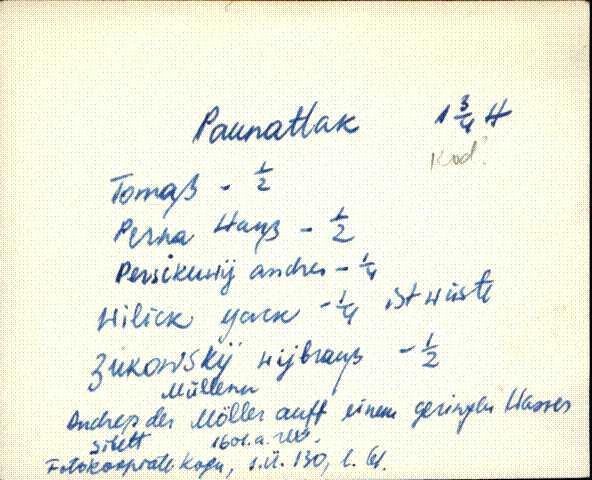 Paunatlak 1 3/4 H
Kod?
Tomaß - 1/2
Perna Hanß - 1/2
Persikuwij andres - 1/4
Wilick yorck - 1/4 ist wüste
Zukowskÿ wijbranß - 1/2
Müllenn
Andreß der Möller auff einem geringen Wasser
sitett 1601.a.
Fotokopiate Kopu, s.ü. 130, l. 61.